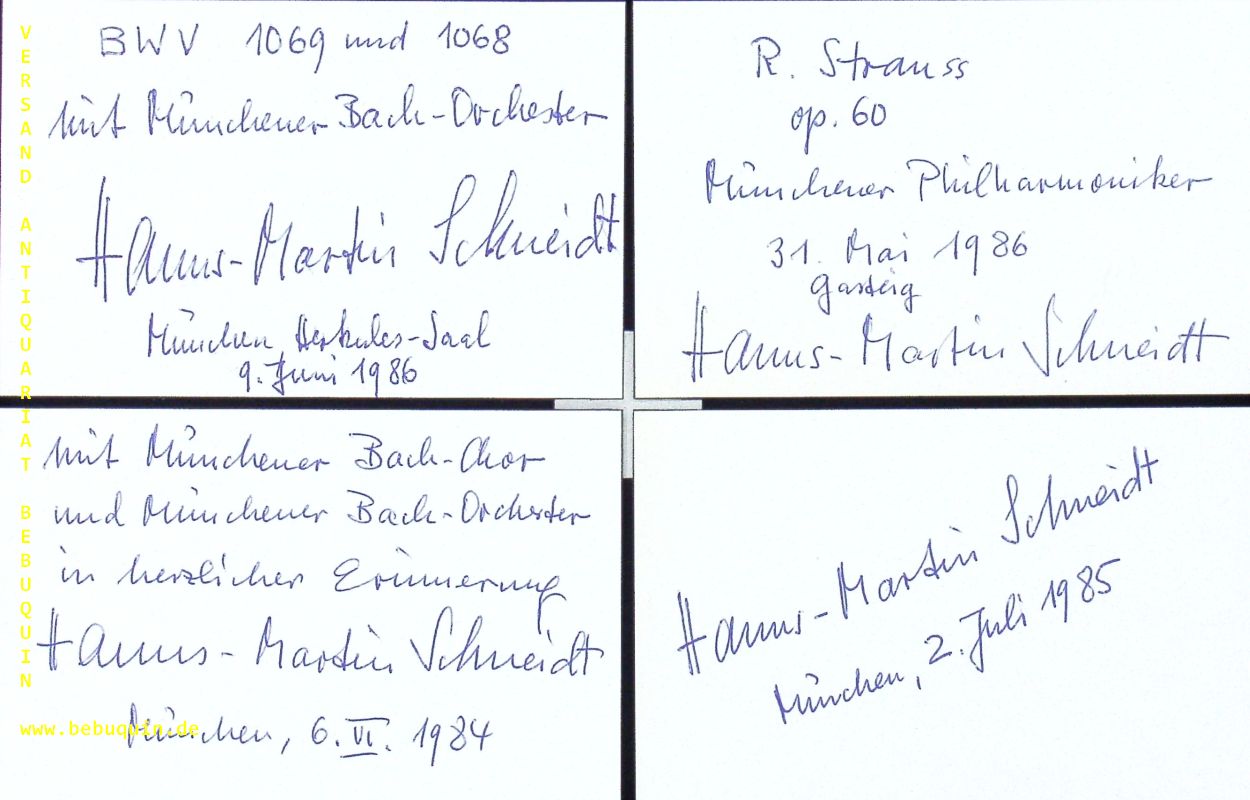 BWV 1069 und 1068
mit Münchener Bach-Orchester
Hanns-Martin Schneidt
München Herkules-Saal
9. Juni 1986
R. Strauss
op. 60
Münchener Philharmoniker
31. Mai 1986
Gasteig
Hanns-Martin Schneidt
mit Münchener Bach-Chor
und Münchener Bach-Orchester
in herzlicher Erinnerung
Hanns-Martin Schneidt
München, 6. VI. 1984
Hanns-Martin Schneidt
München, 2. Juli 1985
VERSAND ANTIQUARIAT BEBUQUIN
www.bebuquin.de